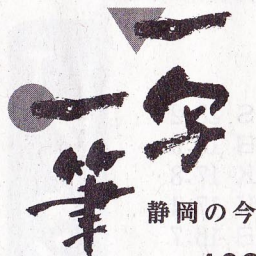 一写
一筆
静岡の今